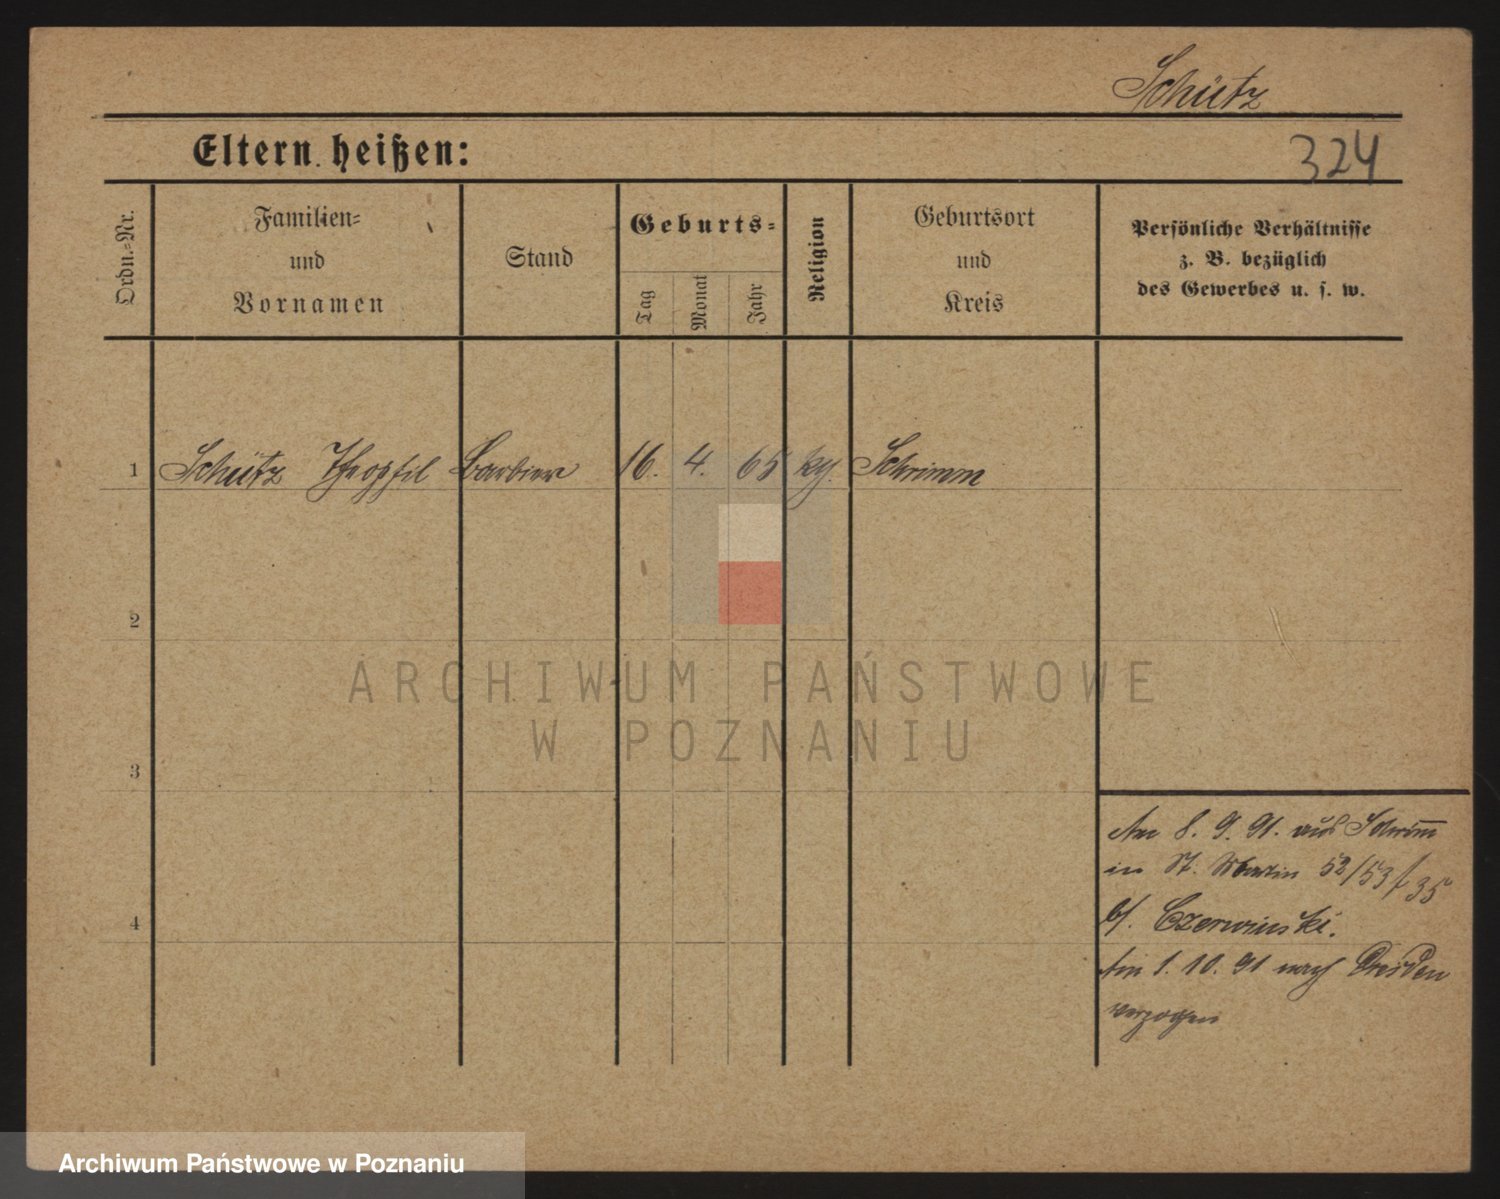 Schütz
Eltern heißen:
324
Ordn.-Nr.
Familien-
und
Vornamen
Stand
Geburts-
Tag
Monat
Jahr
Religion
Geburtsort
und
Kreis
Persönliche Verhältnisse
z. B. bezüglich
des Gewerbes u. s. w.
1 Schütz Theophil Barbier 16. 4. 65 Schrimm
2
ARCHIWUM PAŃSTWOWE
W POZNANIU
3
Am 8. 9. 91. aus Schrim̄
in St. Martin 52/53 35
b/. Czerwinski.
4
Am 1. 10. 91 nach Dresden
verzogen
Archiwum Państwowe w Poznaniu